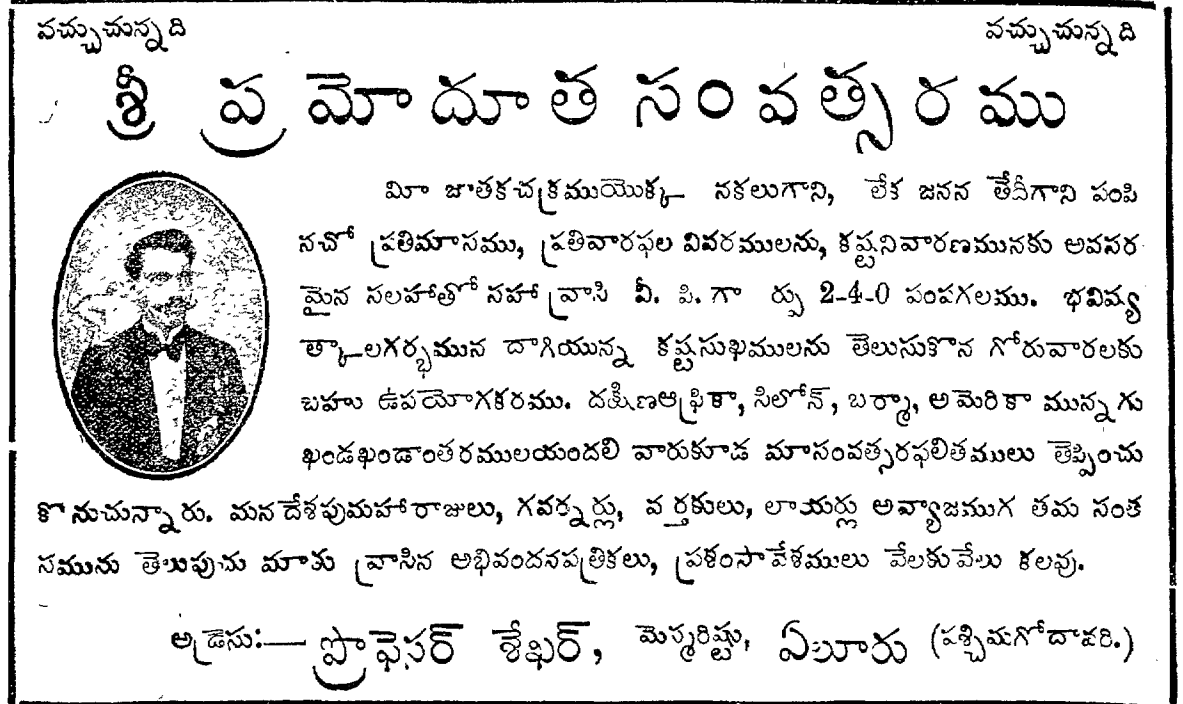 వచ్చుచున్నది వచ్చుచున్నది
శ్రీ ప్రమోదూత సంవత్సరము
మీ జాతకచక్రముయొక్క నకలుగాని, లేక జనన తేదీగాని పంపి
నచో ప్రతిమాసము, ప్రతివారఫల వివరములను, కష్టనివారణమునకు అవసర
మైన సలహాతో సహా వ్రాసి వీ. పి. గా ర్పు 2-4-0 పంపగలము. భవిష్య
త్కాలగర్భమున దాగియున్న కష్టసుఖములను తెలుసుకొన గోరువారలకు
బహు ఉపయోగకరము. దక్షిణఆఫ్రికా, సిలోన్, బర్మా, అమెరికా మున్నగు
ఖండఖండాంతరములయందలి వారుకూడ మాసంవత్సరఫలితములు తెప్పించు
కొనుచున్నారు. మనదేశపుమహారాజులు, గవర్నర్లు, వర్తకులు, లాయర్లు అవ్యాజముగ తమ సంత
సమును తెలుపుచు మాకు వ్రాసిన అభివందనపత్రికలు, ప్రశంసావేశములు వేలకువేలు కలవు.
అడ్రెసు:— ప్రొఫెసర్ శేఖర్, మెస్మరిష్టు, ఏలూరు (పశ్చిమగోదావరి.)